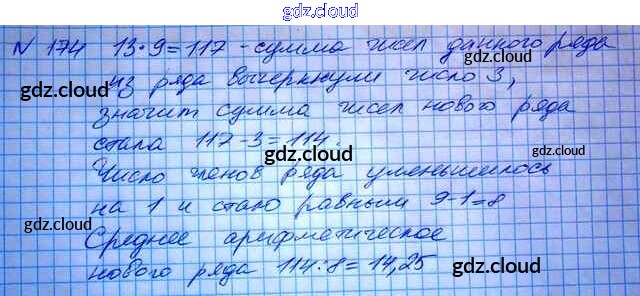 gdz.cloud
N 174 13·9=117 - сумма чисел данного ряда
gdz.cloud gdz.cloud
из ряда вычеркнули число 3,
gdz.cloud
значит сумма чисел нового ряда
стала 117-3=114.
gdz.cloud gdz.cloud
Число членов ряда уменьшилось
на 1 и стало равным 9-1=8
gdz.cloud gdz.cloud
Среднее арифметическое
нового ряда 114:8=14,25
gdz.cloud gdz.cloud